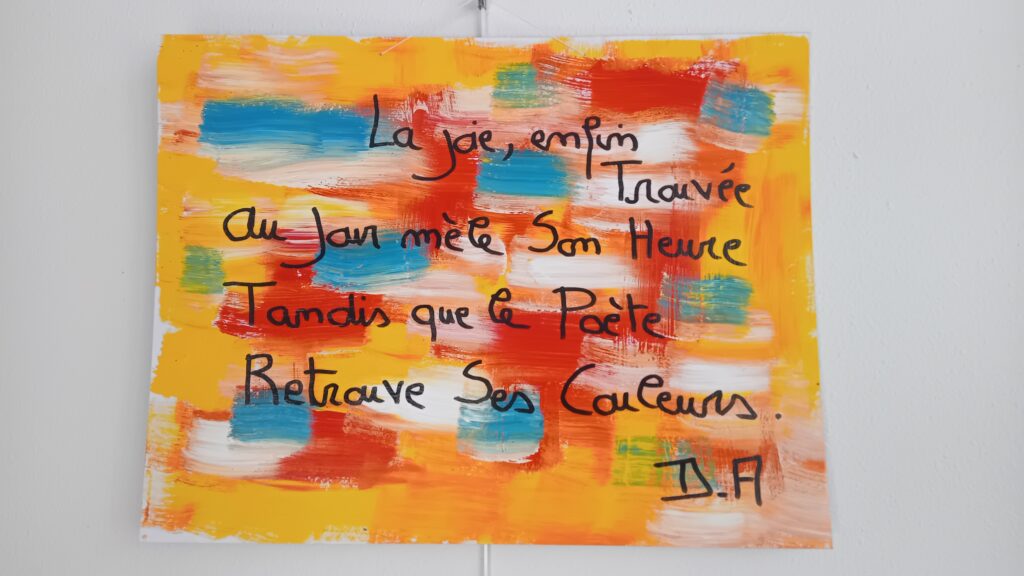 La joie, enfin
Trouvée
au Jour mèle Son Heure
Tandis que le Poète
Retrouve Ses Couleurs.
D.A